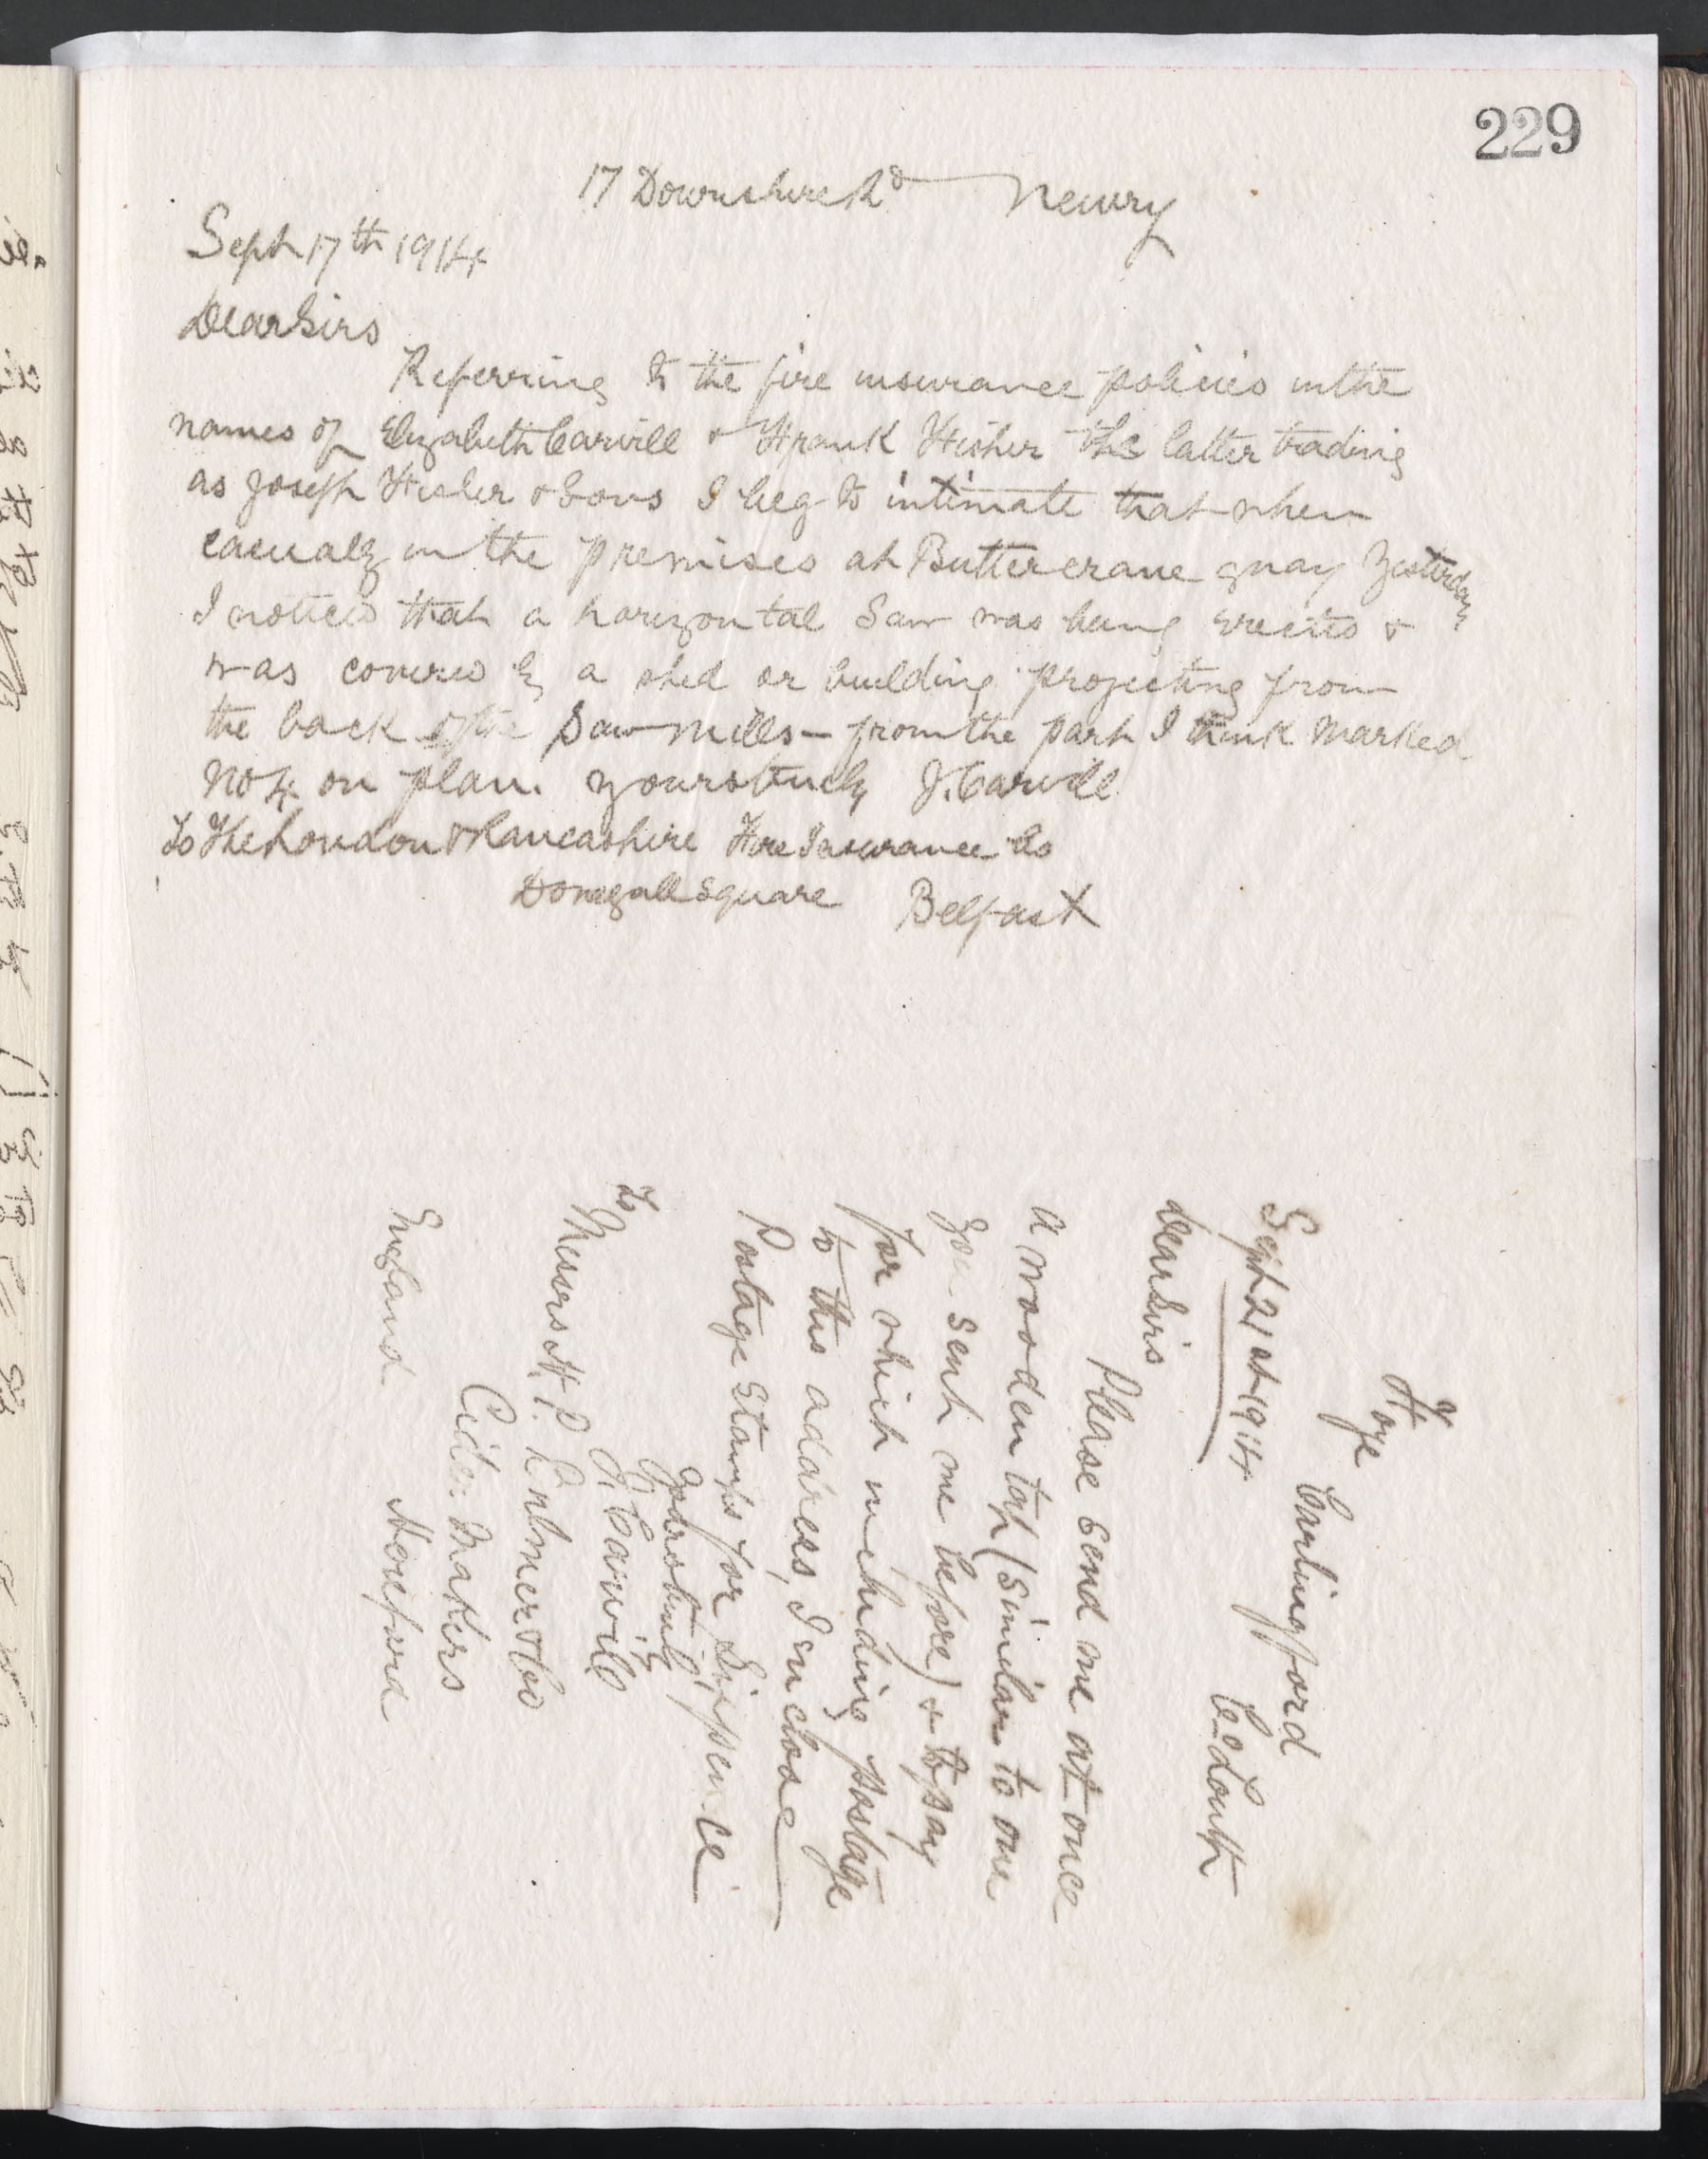 229
17 Downshire Rd Newry
Sept 17th 1914
Dear Sirs
Referring to the fire insurance policies in the
names of Elizabeth Carvill & Frank Fisher the latter trading
as Joseph Fisher & Sons I beg to intimate that when
casually in the premises at Buttercrane quay yesterday
I noticed that a horizontal Saw was being erected &
was covered by a shed or building projecting from
the back of the Saw Mills - from the part I think marked
No 4 on plan. yours truly J. Carvill
To The London & Lancashire Fire Insurance Co
Donegall Square Belfast
Carlingford
Co Louth
Sept 21st 1914
Dear Sirs
Please send me at once
a wooden tap (similar to one
you sent me before) & to pay
for which including postage
to this address, I enclose
Postage Stamps for Sixpence
yours truly
J. Carvill
To
Messrs H. P. Bulmer & Co
Cider Makers
Hereford
England